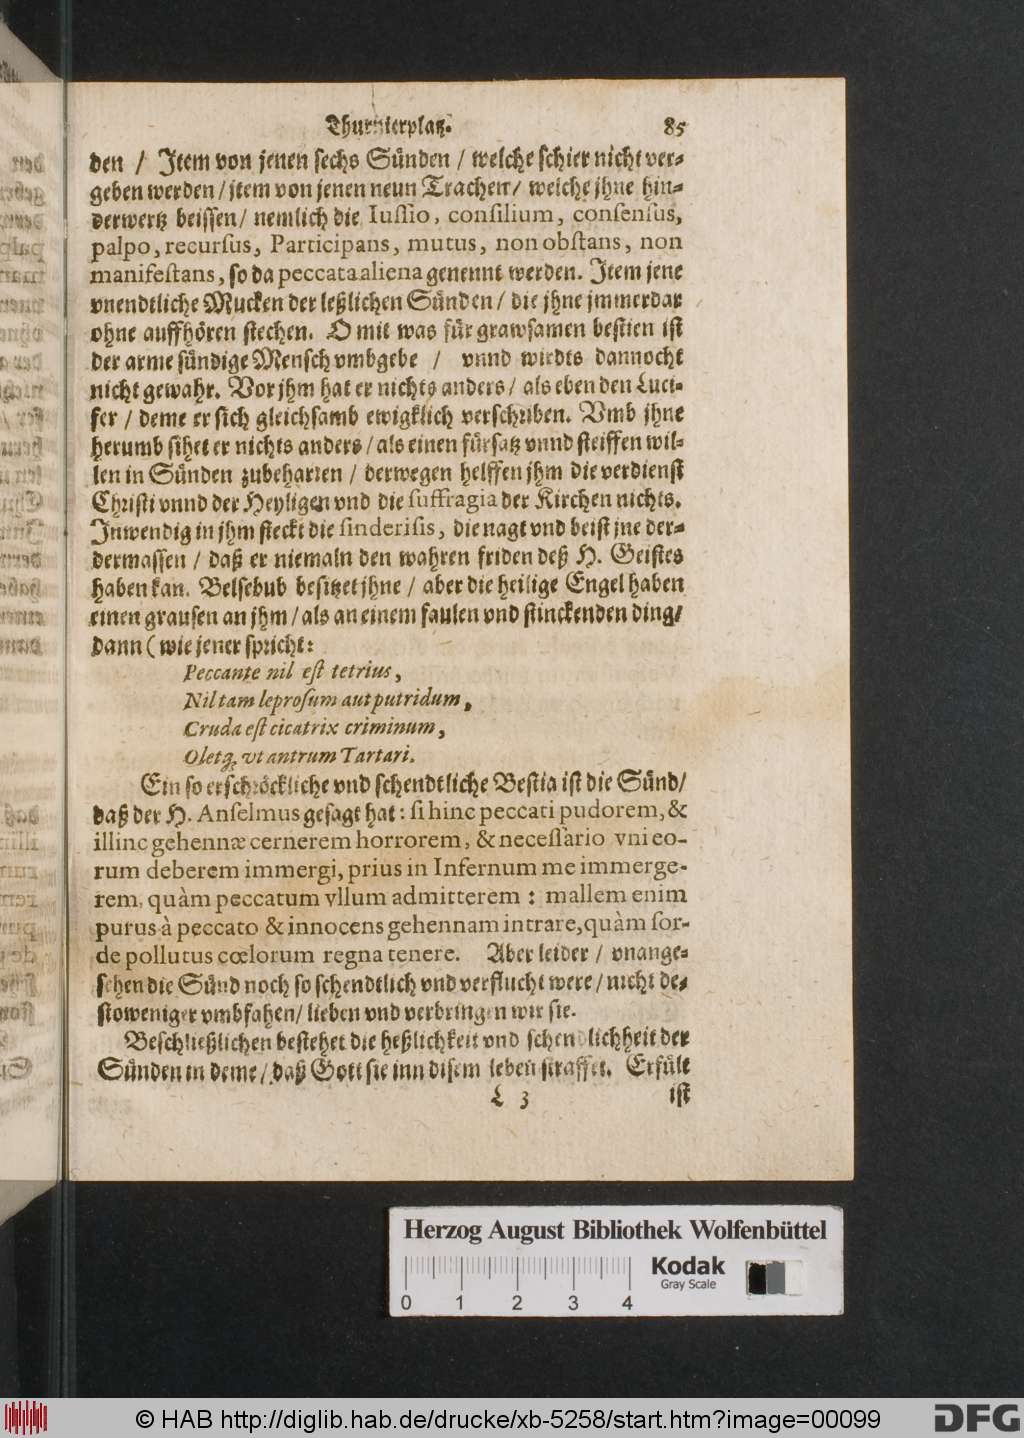 Thurnierplatz. 85
den / Jtem von jenen sechs Sünden / welche schier nicht ver-
geben werden / jtem von jenen neun Trachen / welche jhne hin-
derwertz beissen / nemlich die Iussio, consilium, consensus,
palpo, recursus, Participans, mutus, non obstans, non
manifestans, so da peccata aliena genennt werden. Jtem jene
vnendtliche Mucken der leßlichen Sünden / die jhne jmmerdar
ohne auffhören stechen. O mit was für grawsamen bestien ist
der arme sündige Mensch vmbgebē / vnnd wirdts dannocht
nicht gewahr. Vor jhm hat er nichts anders / als eben den Luci-
fer / deme er sich gleichsamb ewigklich verschriben. Vmb jhne
herumb sihet er nichts anders / als einen fürsatz vnnd steiffen wil-
len in Sünden zubeharren / derwegen helffen jhm die verdienst
Christi vnnd der Heyligen vnd die suffragia der Kirchen nichts.
Jnwendig in jhm steckt die sinderisis, die nagt vnd beist jne der-
dermassen / daß er niemaln den wahren friden deß H. Geistes
haben kan. Belsebub besitzet jhne / aber die heilige Engel haben
einen grausen an jhm / als an einem faulen vnd stinckenden ding /
dann (wie jener spricht:
Peccante nil est tetrius,
Nil tam leprosum aut putridum,
Cruda est cicatrix criminum,
Oletq; vt antrum Tartari.
Ein so erschröckliche vnd schendtliche Bestia ist die Sünd /
daß der H. Anselmus gesagt hat: si hinc peccati pudorem, &
illinc gehennæ cernerem horrorem, & necessario vni eo-
rum deberem immergi, prius in Infernum me immerge-
rem, quàm peccatum vllum admitterem: mallem enim
purus à peccato & innocens gehennam intrare, quàm sor-
de pollutus cœlorum regna tenere. Aber leider / vnange-
sehen die Sünd noch so schendtlich vnd verflucht were / nicht de-
stoweniger vmbfahen / lieben vnd verbringen wir sie.
Beschließlichen bestehet die heßlichkeit vnd schendlichheit der
Sünden in deme / daß Gott sie inn disem leben straffet. Erfült
L 3 ist
Herzog August Bibliothek Wolfenbüttel
Kodak
Gray Scale
0 1 2 3 4
© HAB http://diglib.hab.de/drucke/xb-5258/start.htm?image=00099
DFG